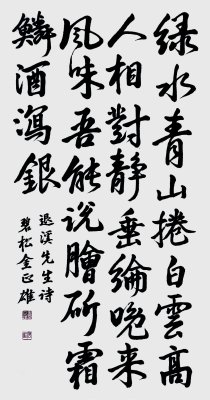 綠水青山捲白雲高
人相對靜垂綸晩来
風味吾能说膾斫霜
鱗酒瀉銀
退溪先生诗
碧松金正雄